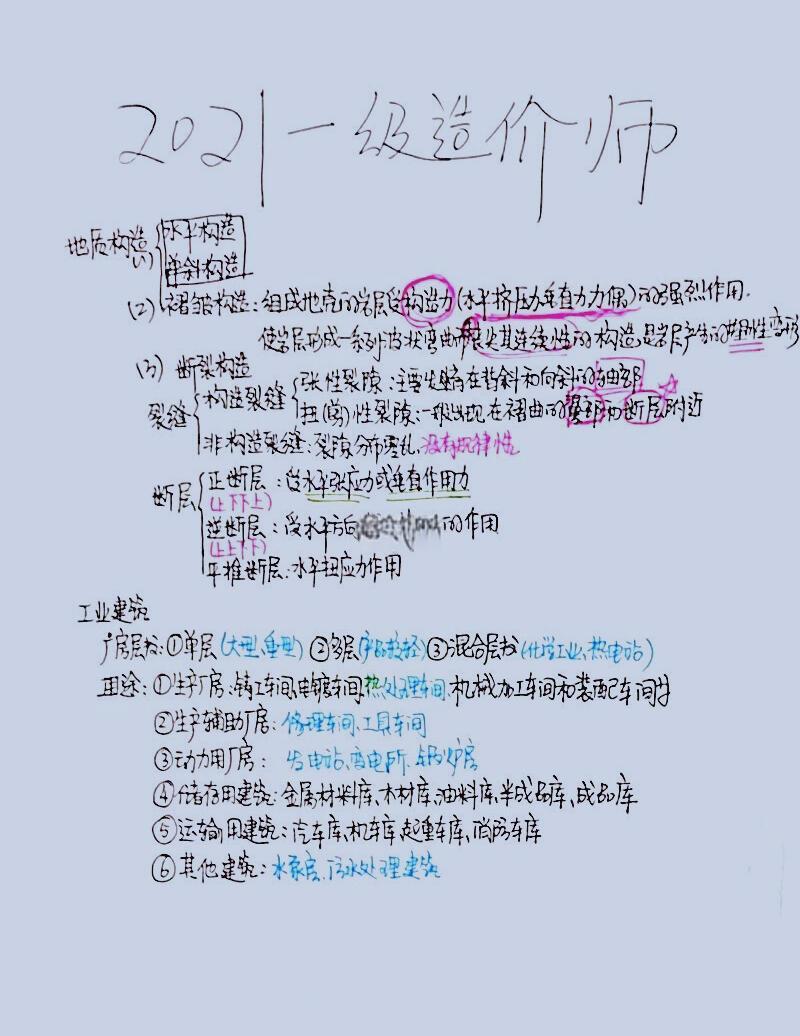 2021一级造价师
地质构造 水平构造
(1) 单斜构造
(2) 褶皱构造：组成地壳的岩层受构造力(水平挤压力、垂直力、力偶)的强烈作用.
使岩层形成一系列波状弯曲而未丧失其连续性的构造,是岩层产生的塑性变形
(3) 断裂构造
裂缝 构造裂缝 张性裂隙：主要发育在背斜和向斜的轴部
扭(剪)性裂隙：一般出现在褶曲的翼部和断层附近
非构造裂缝：裂隙分布零乱,没有规律性
断层 正断层：受水平张应力或垂直作用力
(上下下上)
逆断层：受水平方向 的作用
(上上下下)
平推断层：水平扭应力作用
工业建筑
厂房层数：①单层(大型、重型) ②多层(产品较轻) ③混合层数(化学工业、热电站)
用途：①生产厂房：铸工车间、电镀车间、热处理车间、机械加工车间和装配车间等
②生产辅助厂房：修理车间、工具车间
③动力用厂房：发电站、变电所、锅炉房
④储存用建筑：金属材料库、木材库、油料库、半成品库、成品库
⑤运输用建筑：汽车库、机车库、起重车库、消防车库
⑥其他建筑：水泵房、污水处理建筑